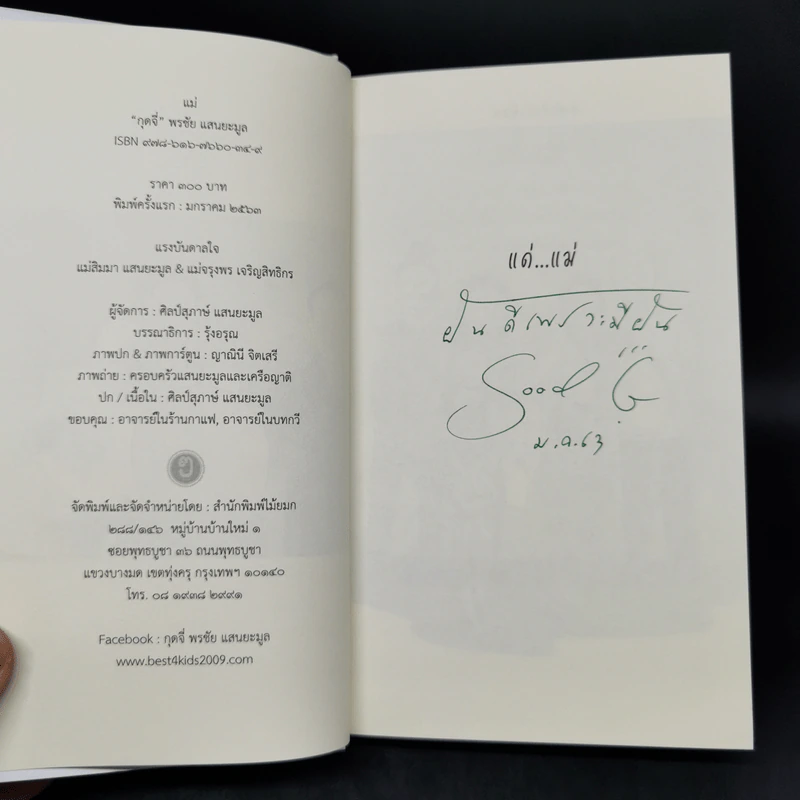 แม่
“กุดจี่” พรชัย แสนยะมูล
ISBN ๙๗๘-๖๑๖-๗๖๖๐-๓๔-๙
ราคา ๓๐๐ บาท
พิมพ์ครั้งแรก : มกราคม ๒๕๖๓
แรงบันดาลใจ
แม่สิมมา แสนยะมูล & แม่จรุงพร เจริญสิทธิกร
ผู้จัดการ : ศิลป์สุภาษ์ แสนยะมูล
บรรณาธิการ : รุ้งอรุณ
ภาพปก & ภาพการ์ตูน : ญาณินี จิตเสรี
ภาพถ่าย : ครอบครัวแสนยะมูลและเครือญาติ
ปก / เนื้อใน : ศิลป์สุภาษ์ แสนยะมูล
ขอบคุณ : อาจารย์ในร้านกาแฟ, อาจารย์ในบทกวี
ๆ
จัดพิมพ์และจัดจำหน่ายโดย : สำนักพิมพ์ไม้ยมก
๒๘๘/๑๔๖ หมู่บ้านบ้านใหม่ ๑
ซอยพุทธบูชา ๓๖ ถนนพุทธบูชา
แขวงบางมด เขตทุ่งครุ กรุงเทพฯ ๑๐๑๔๐
โทร. ๐๘ ๑๙๓๘ ๒๙๙๑
Facebook : กุดจี่ พรชัย แสนยะมูล
www.best4kids2009.com
แด่...แม่
ฝันดีเพราะมีฝัน
Good G
ม.ค.63